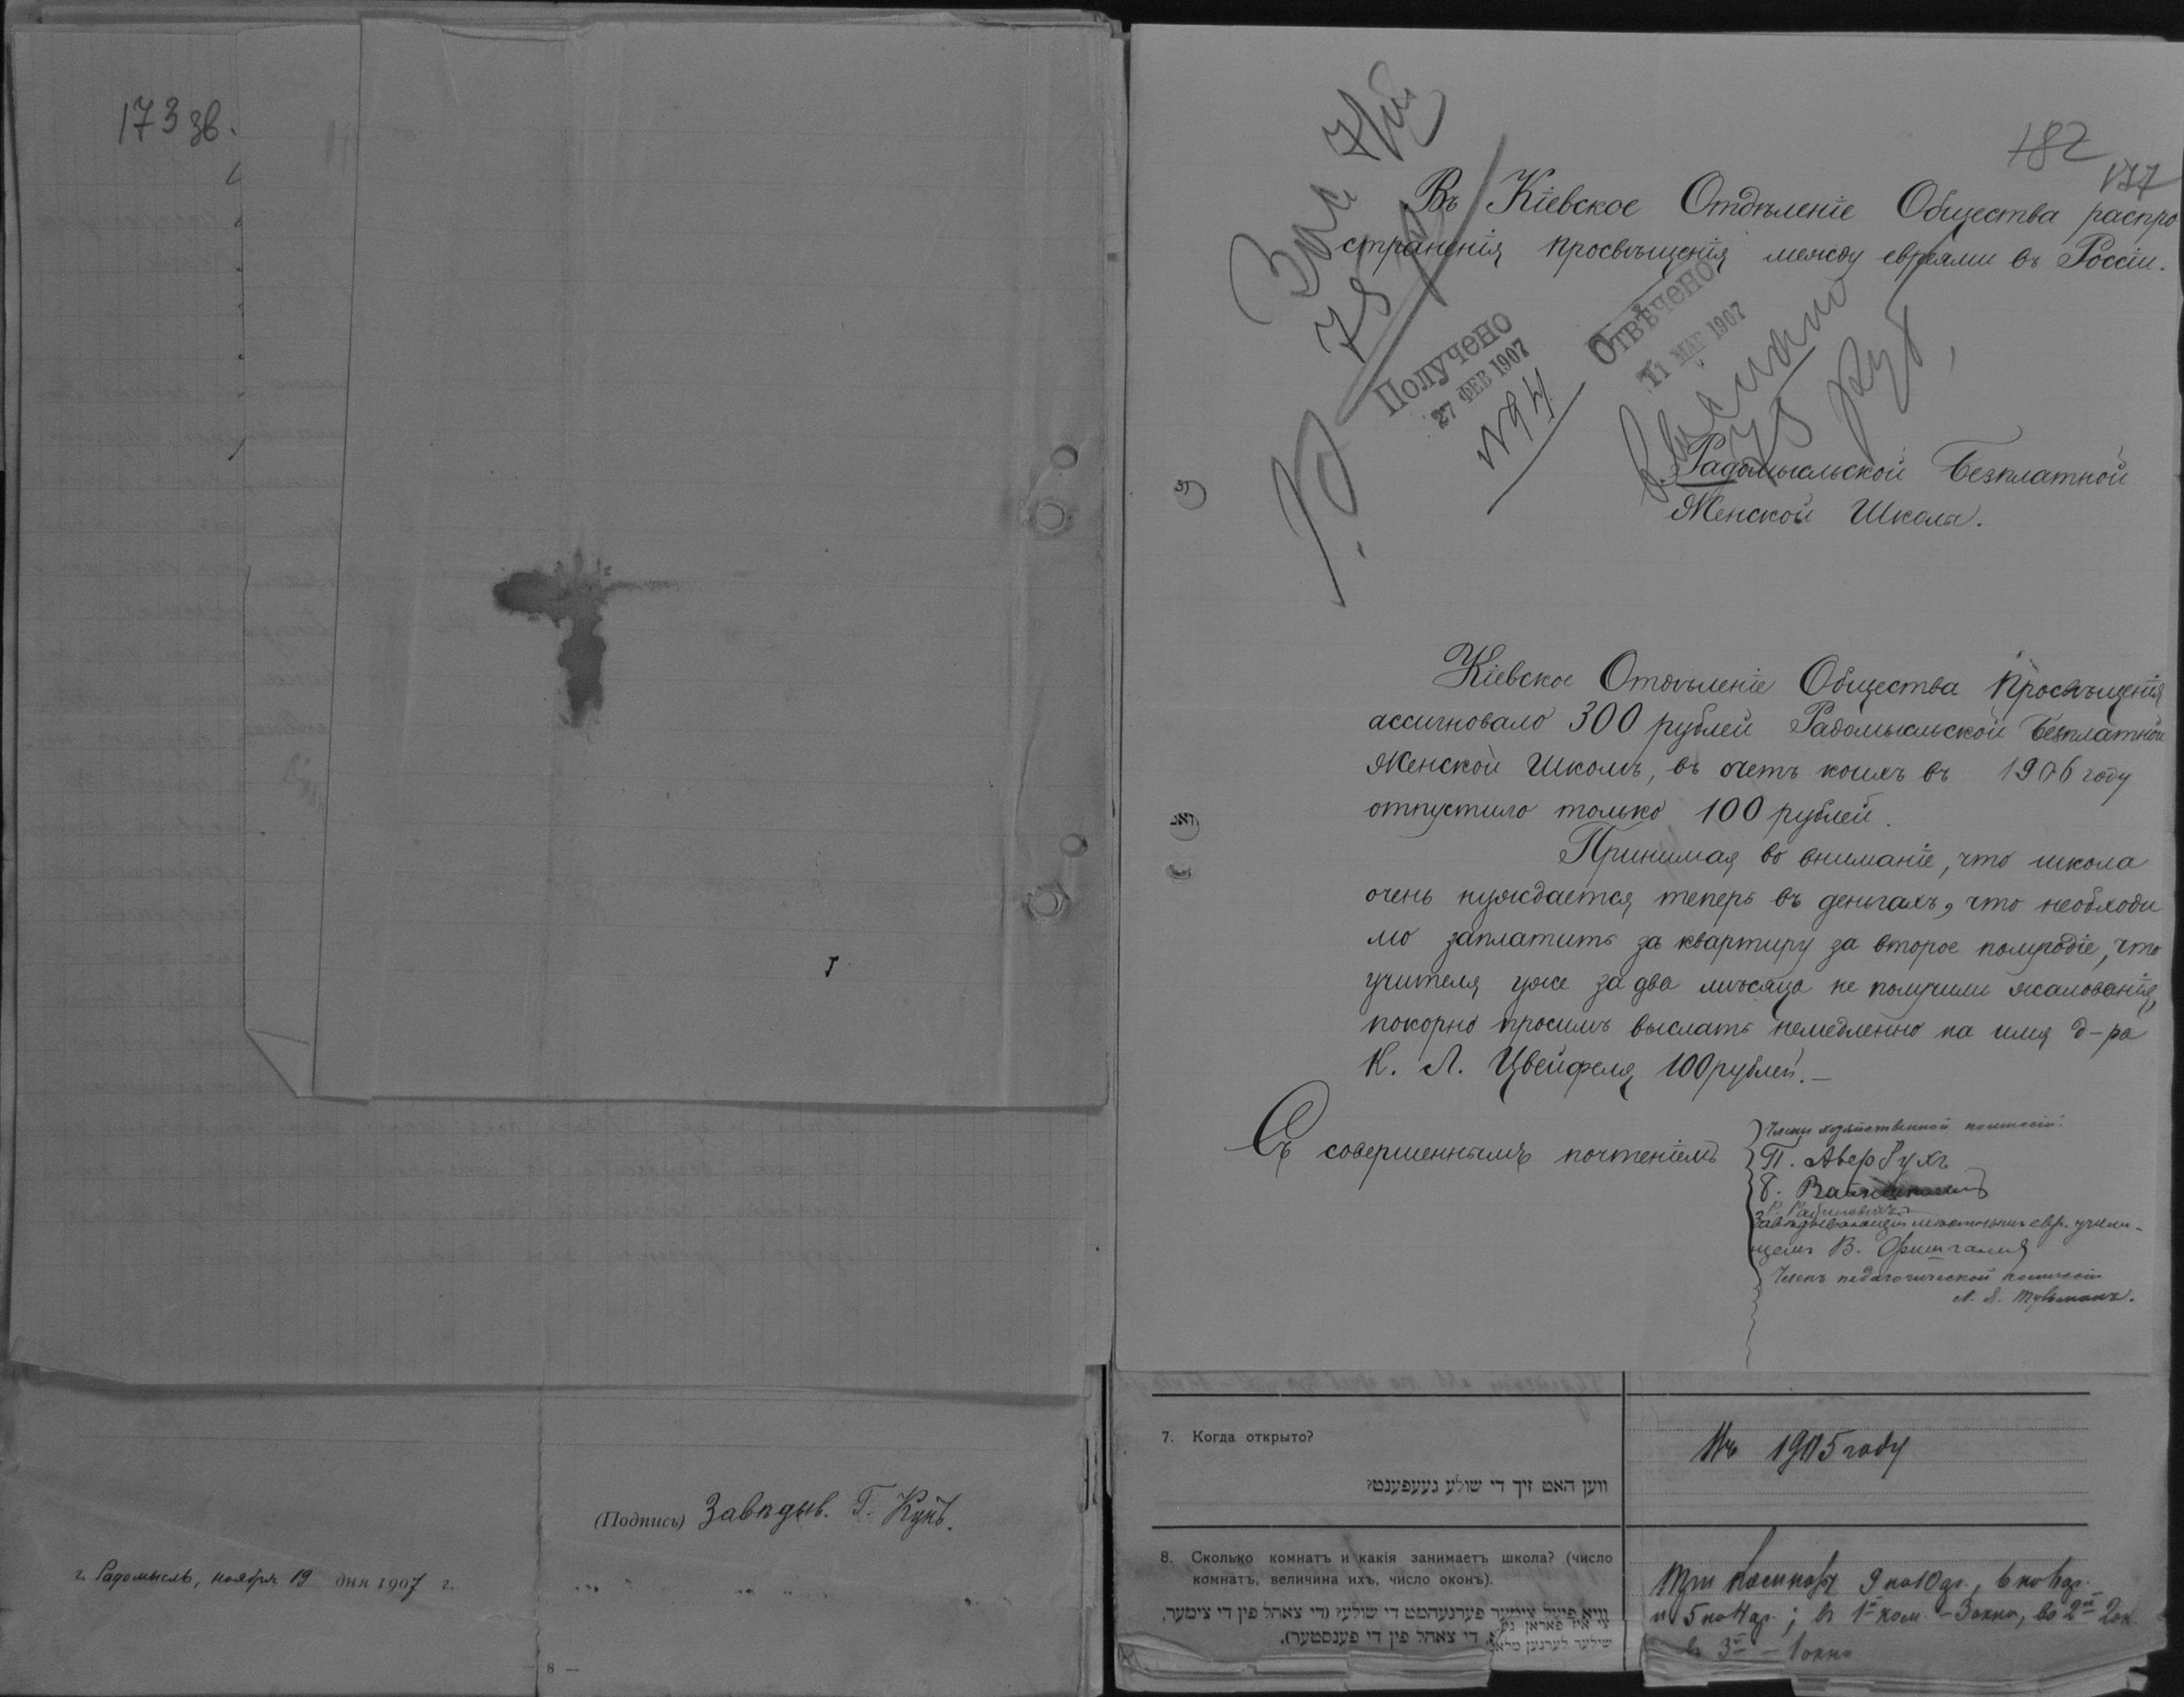 173 зв.
(Подпись) Завѣдыв. Г. Кунъ.
г. Радомысль, ноября 19 дня 1907 г.
8 —
182
177
Въ Кіевское Отдѣленіе Общества распро
страненія просвѣщенія между евреями въ Россіи.
75
Получено
27 ФЕВ 1907
№ 94
Отвѣчено
11 МАР 1907
75 руб.
Радомысльской Безплатной
Женской Школы.
Кіевское Отдѣленіе Общества Просвѣщенія
ассигновало 300 рублей Радомысльской Безплатной
Женской Школѣ, въ счетъ коихъ въ 1906 году
отпустило только 100 рублей.
Принимая во вниманіе, что школа
очень нуждается теперь въ деньгахъ, что необходи
мо заплатить за квартиру за второе полугодіе, что
учителя уже за два мѣсяца не получили жалованія,
покорно просимъ выслать немедленно на имя д-ра
К. Л. Цвейфеля 100 рублей. —
Съ совершеннымъ почтеніемъ
Члены хозяйственной комиссіи:
П. Авербухъ
Р. Рабиновичъ
Завѣдывающій евр. учили-
щемъ В. Фишганъ
Членъ педагогической комиссіи
7. Когда открыто?
ווען האט זיך די שולע געעפענט?
Въ 1905 году
8. Сколько комнатъ и какія занимаетъ школа? (число
комнатъ, величина ихъ, число оконъ).
וויא פיעל צימער פערנעהמט די שולע? (די צאהל פין די צימער,
די צאהל פין די פענסטער).
Три комнаты 9 на 10 ар., 6 на 6 ар.
и 5 на 4 ар.; въ 1й ком. — 3 окна, во 2й 2 ок
въ 3й — 1 окно